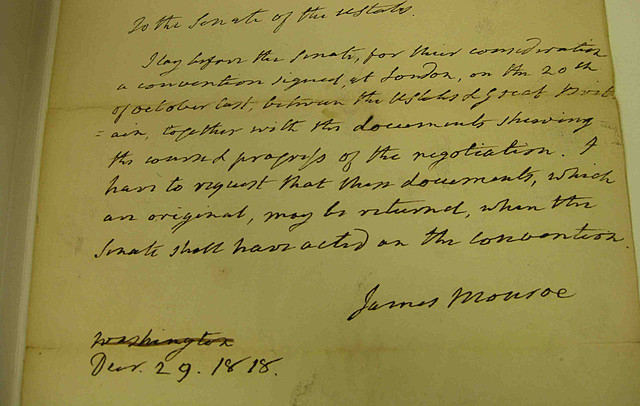 To the Senate of the UStates.
I lay before the Senate, for their consideration
a convention signed, at London, on the 20th
of October last, between the UStates & Great Brit
=ain, together with the documents shewing
the course & progress of the negotiation. I
have to request that these documents, which
are original, may be returned, when the
Senate shall have acted on the convention.
James Monroe
Washington
Decr. 29. 1818.